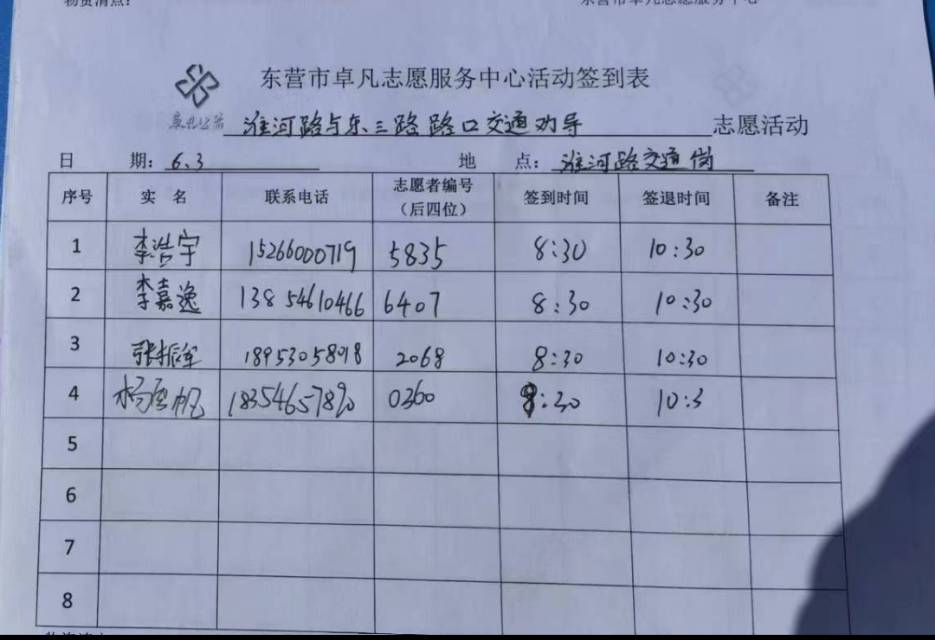 物资清点:
东营市卓凡志愿服务中心
东营市卓凡志愿服务中心活动签到表
卓凡公益 淮河路与东三路路口交通劝导 志愿活动
日 期: 6.3 地 点: 淮河路交通岗
序号 实 名 联系电话 志愿者编号(后四位) 签到时间 签退时间 备注
1 李浩宇 15266000719 5835 8:30 10:30
2 李嘉逸 13854610466 6407 8:30 10:30
3 张振 18953058918 2068 8:30 10:30
4 杨 帆 18354657890 0360 8:30 10:3
5
6
7
8